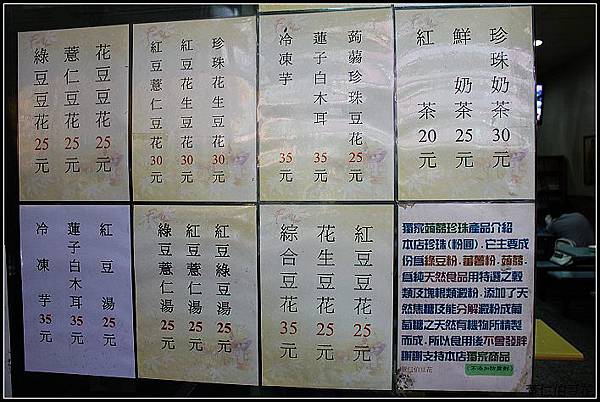 花豆豆花25元
薏仁豆花25元
綠豆豆花25元
珍珠花生豆花30元
紅豆花生豆花30元
紅豆薏仁豆花30元
蒟蒻珍珠豆花25元
蓮子白木耳35元
冷凍芋35元
珍珠奶茶30元
鮮奶茶25元
紅茶20元
紅豆湯25元
蓮子白木耳35元
冷凍芋35元
紅豆綠豆湯25元
紅豆薏仁湯25元
綠豆薏仁湯25元
紅豆豆花25元
花生豆花25元
綜合豆花35元
獨家蒟蒻珍珠產品介紹
本店珍珠(粉圓),它主要成
份含綠豆粉、蕃薯粉、蒟蒻,
含純天然食品用特選之穀
類及塊根類澱粉,添加了天
然焦糖及能分解澱粉成葡
萄糖之天然有機物所精製
而成,所以食用後不會發胖
謝謝支持本店獨家商品
(不添加防腐劑)